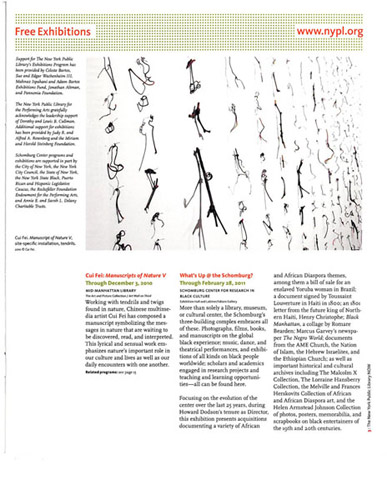 Free Exhibitions
www.nypl.org
Support for The New York Public
Library's Exhibitions Program has
been provided by Celeste Bartos,
Sue and Edgar Wachenheim III,
Mahnaz Ispahani and Adam Bartos
Exhibitions Fund, Jonathan Altman,
and Pannonia Foundation.
The New York Public Library for
the Performing Arts gratefully
acknowledges the leadership support
of Dorothy and Lewis B. Cullman.
Additional support for exhibitions
has been provided by Judy R. and
Alfred A. Rosenberg and the Miriam
and Harold Steinberg Foundation.
Schomburg Center programs and
exhibitions are supported in part by
the City of New York, the New York
City Council, the State of New York,
the New York State Black, Puerto
Rican and Hispanic Legislative
Caucus, the Rockefeller Foundation
Endowment for the Performing Arts,
and Annie E. and Sarah L. Delany
Charitable Trusts.
Cui Fei: Manuscripts of Nature V,
site-specific installation, tendrils,
Cui Fei: Manuscripts of Nature V
Through December 3, 2010
MID-MANHATTAN LIBRARY
The Art and Picture Collection / Art Wall on Third
Working with tendrils and twigs
found in nature, Chinese multime-
dia artist Cui Fei has composed a
manuscript symbolizing the mes-
sages in nature that are waiting to
be discovered, read, and interpreted.
This lyrical and sensual work em-
phasizes nature's important role in
our culture and lives as well as our
daily encounters with one another.
Related programs: see page 15
What's Up @ the Schomburg?
Through February 28, 2011
SCHOMBURG CENTER FOR RESEARCH IN
BLACK CULTURE
Exhibition Hall and Latimer/Edison Gallery
More than solely a library, museum,
or cultural center, the Schomburg's
three-building complex embraces all
of these. Photographs, films, books,
and manuscripts on the global
black experience; music, dance, and
theatrical performances, and exhibi-
tions of all kinds on black people
worldwide; scholars and academics
engaged in research projects and
teaching and learning opportuni-
ties—all can be found here.
Focusing on the evolution of the
center over the last 25 years, during
Howard Dodson's tenure as Director,
this exhibition presents acquisitions
documenting a variety of African
and African Diaspora themes,
among them a bill of sale for an
enslaved Yoruba woman in Brazil;
a document signed by Toussaint
Louverture in Haiti in 1802; an 1801
letter from the future king of North-
ern Haiti, Henry Christophe; Black
Manhattan, a collage by Romare
Bearden; Marcus Garvey's newspa-
per The Negro World; documents
from the AME Church, the Nation
of Islam, the Hebrew Israelites, and
the Ethiopian Church; as well as
important historical and cultural
archives including The Malcolm X
Collection, The Lorraine Hansberry
Collection, the Melville and Frances
Herskovits Collection of African
and African Diaspora art, and the
Helen Armstead Johnson Collection
of photos, posters, memorabilia, and
scrapbooks on black entertainers of
the 19th and 20th centuries.
The New York Public Library NOW